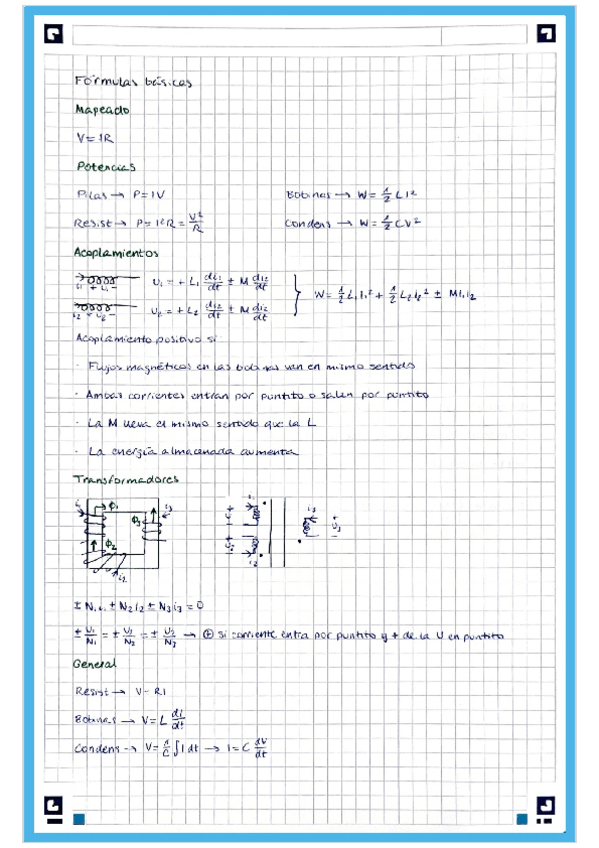 Fórmulas básicas
Mapeado
V=IR
Potencias
Pilas → P=IV
Bobinas → W= 1/2 LI²
Resist → P= I²R = V²/R
Condens → W= 1/2 CV²
Acoplamientos
i₁ + L₁ - U₁ = + L₁ di₁/dt ± M di₂/dt
W= 1/2 L₁I₁² + 1/2 L₂I₂² ± Mi₁i₂
i₂ + L₂ - U₂ = + L₂ di₂/dt ± M di₂/dt
Acoplamiento positivo si
· Flujos magnéticos en las bobinas van en mismo sentido
· Ambas corrientes entran por puntito o salen por puntito
· La M lleva el mismo sentido que la L
· La energía almacenada aumenta
Transformadores
i₁ Φ₁ i₃ Φ₃ Φ₂ i₂
+ U₁ - i₁ + U₂ - i₂ i₃ + U₃ -
± N₁i₁ ± N₂i₂ ± N₃i₃ = 0
± U₁/N₁ = ± U₂/N₂ = ± U₃/N₃ → ⊕ si corriente entra por puntito y + de la U en puntito
General
Resist → V= RI
Bobinas → V= L di/dt
Condens → V= 1/C ∫I dt → I= C dV/dt